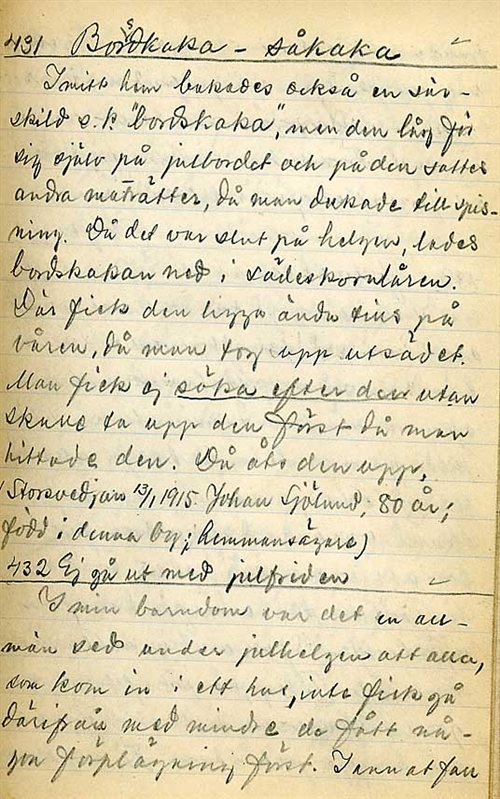 431 Bordskaka – såkaka
I mitt hem bakades också en sär-
skild s.k. "bordskaka", men den låg för
sig själv på julbordet och på den sattes
andra maträtter, då man dukade till spis-
ning. Då det var slut på helgen, lades
bordskakan ned i sädeskornlåren.
Där fick den ligga ända tills på
våren, då man tog upp utsädet.
Man fick ej söka efter den utan
skulle ta upp den först då man
hittade den. Då åts den upp.
(Storsvedjan 13/1 1915. Johan Sjölund, 80 år;
född i denna by; hemmansägare)
432 Ej gå ut med julfriden
I min barndom var det en all-
män sed under julhelgen att alla,
som kom in i ett hus, inte fick gå
därifrån med mindre de fått nå-
gon förplägning först. I annat fall